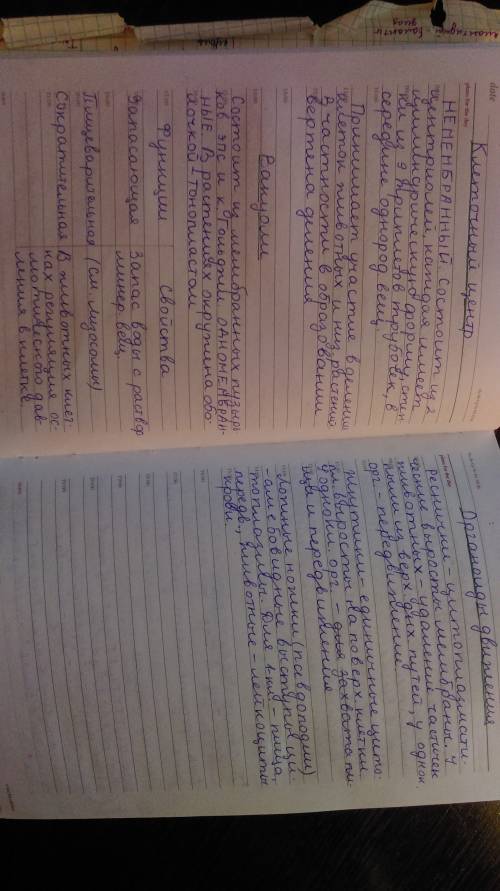 Клеточный центр
НЕМЕМБРАННЫЙ. Состоит из 2
центриолей каждая имеет
цилиндрическую форму, стен
ки из 9 триплетов трубочек, в
середине однород вещ
Принимает участие в делении
клеток животных и низ растений
В частности в образовании
веретена деления
Вакуоли
Состоит из мембранных пузырь
ков эпс и к Гольджи одномембран-
ные. В растениях окружена обо-
лочкой - тонопластом
функции свойства
Запасающая Запас воды с раствор
минер вещ
Пищеварительная (см. лизосомы)
Сократительная В животных клет-
ках регуляция ос-
мотического дав-
ления в клетке
Органоиды движения
Реснички - цитоплазмати-
ческие выросты мембраны. У
животных - удаление частичек
пыли из верх дых путей, у однокл.
орг - передвижение
Жгутики - единичные цито-
пл. выросты на поверх. клетки.
У однокл. орг. - для захвата пи-
щи и передвижения
Ложные ножки (псевдоподии)
- амебовидные выступы ци-
топлазмы. Для 1-кл - пища,
передв., животные - лейкоциты
крови.